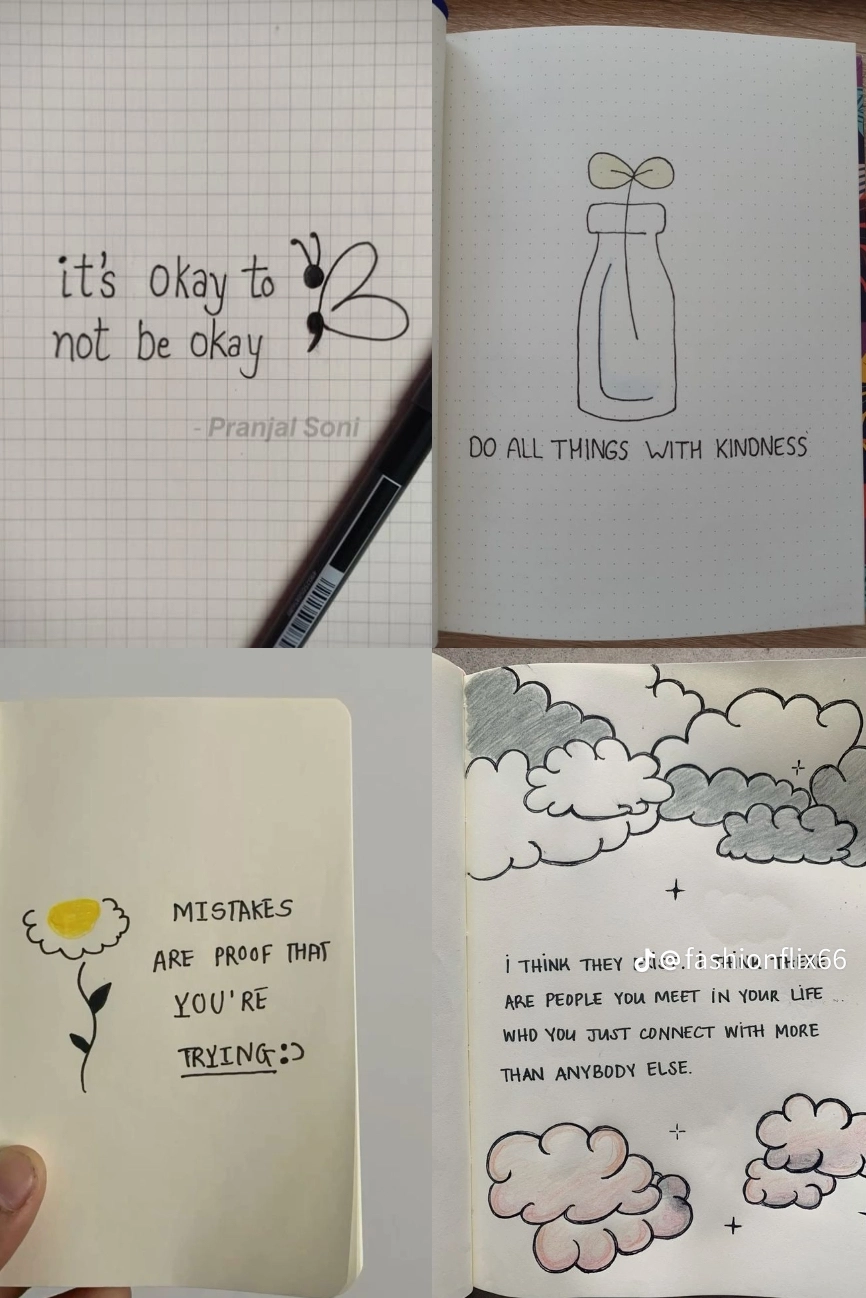 it's okay to
not be okay
- Pranjal Soni
DO ALL THINGS WITH KINDNESS
MISTAKES
ARE PROOF THAT
YOU'RE
TRYING:)
@fashionflix66
i THINK THEY . i THINK THERE
ARE PEOPLE YOU MEET iN YOUR LiFE
WHO YOU JUST CONNECT WiTH MORE
THAN ANYBODY ELSE.